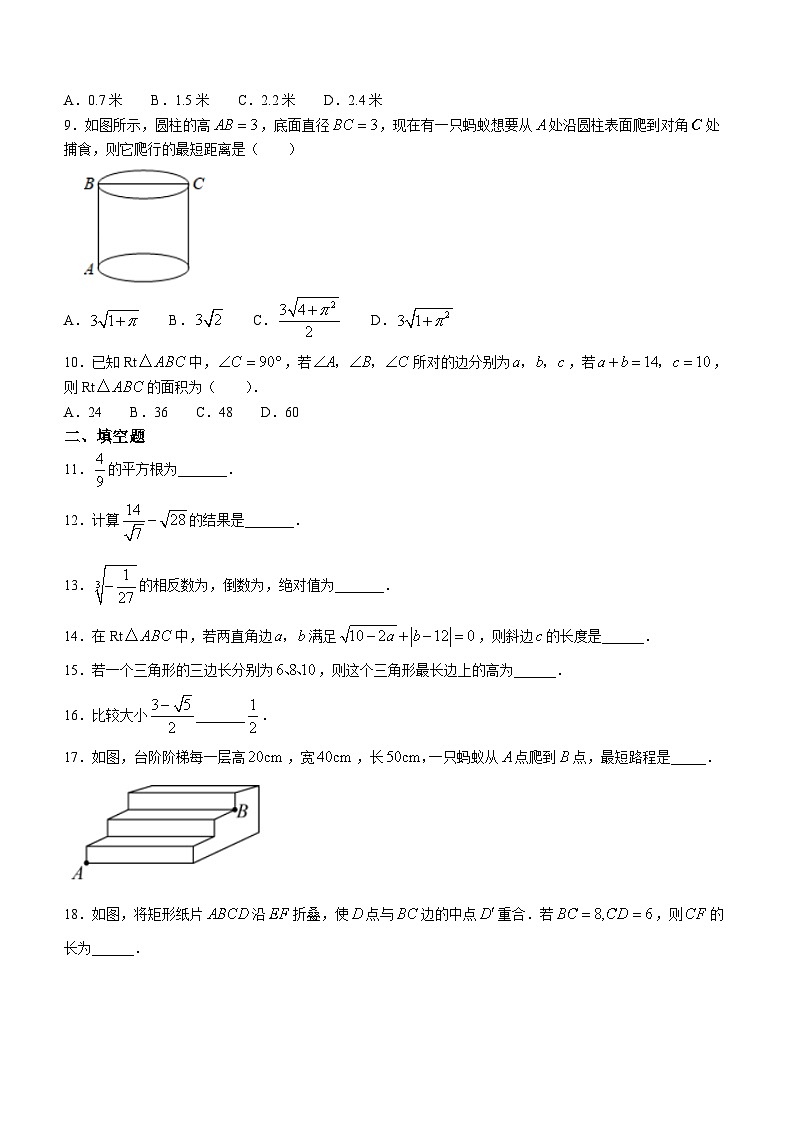 A.0.7米 B.1.5米 C.2.2米 D.2.4米
9.如图所示,圆柱的高AB=3,底面直径BC=3,现在有一只蚂蚁想要从A处沿圆柱表面爬到对角C处
捕食,则它爬行的最短距离是( )
B C
A
A.3√(1+π) B.3√2 C.3√(4+π²)/2 D.3√(1+π²)
10.已知Rt△ABC中,∠C=90°,若∠A,∠B,∠C所对的边分别为a,b,c,若a+b=14,c=10,
则Rt△ABC的面积为( ).
A.24 B.36 C.48 D.60
二、填空题
11.4/9的平方根为_______.
12.计算14/√7-√28的结果是_______.
13.∛(-1/27)的相反数为,倒数为,绝对值为_______.
14.在Rt△ABC中,若两直角边a,b满足√(10-2a)+|b-12|=0,则斜边c的长度是______.
15.若一个三角形的三边长分别为6、8、10,则这个三角形最长边上的高为______.
16.比较大小(3-√5)/2_______1/2.
17.如图,台阶阶梯每一层高20cm,宽40cm,长50cm,一只蚂蚁从A点爬到B点,最短路程是_____.
B
A
18.如图,将矩形纸片ABCD沿EF折叠,使D点与BC边的中点D′重合.若BC=8,CD=6,则CF的
长为______.